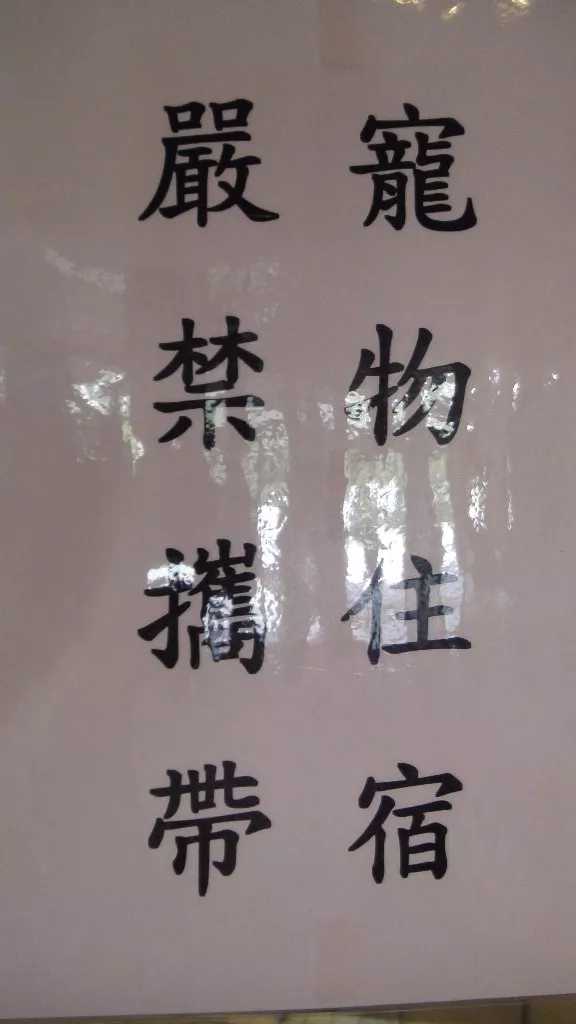 嚴禁攜帶
寵物住宿